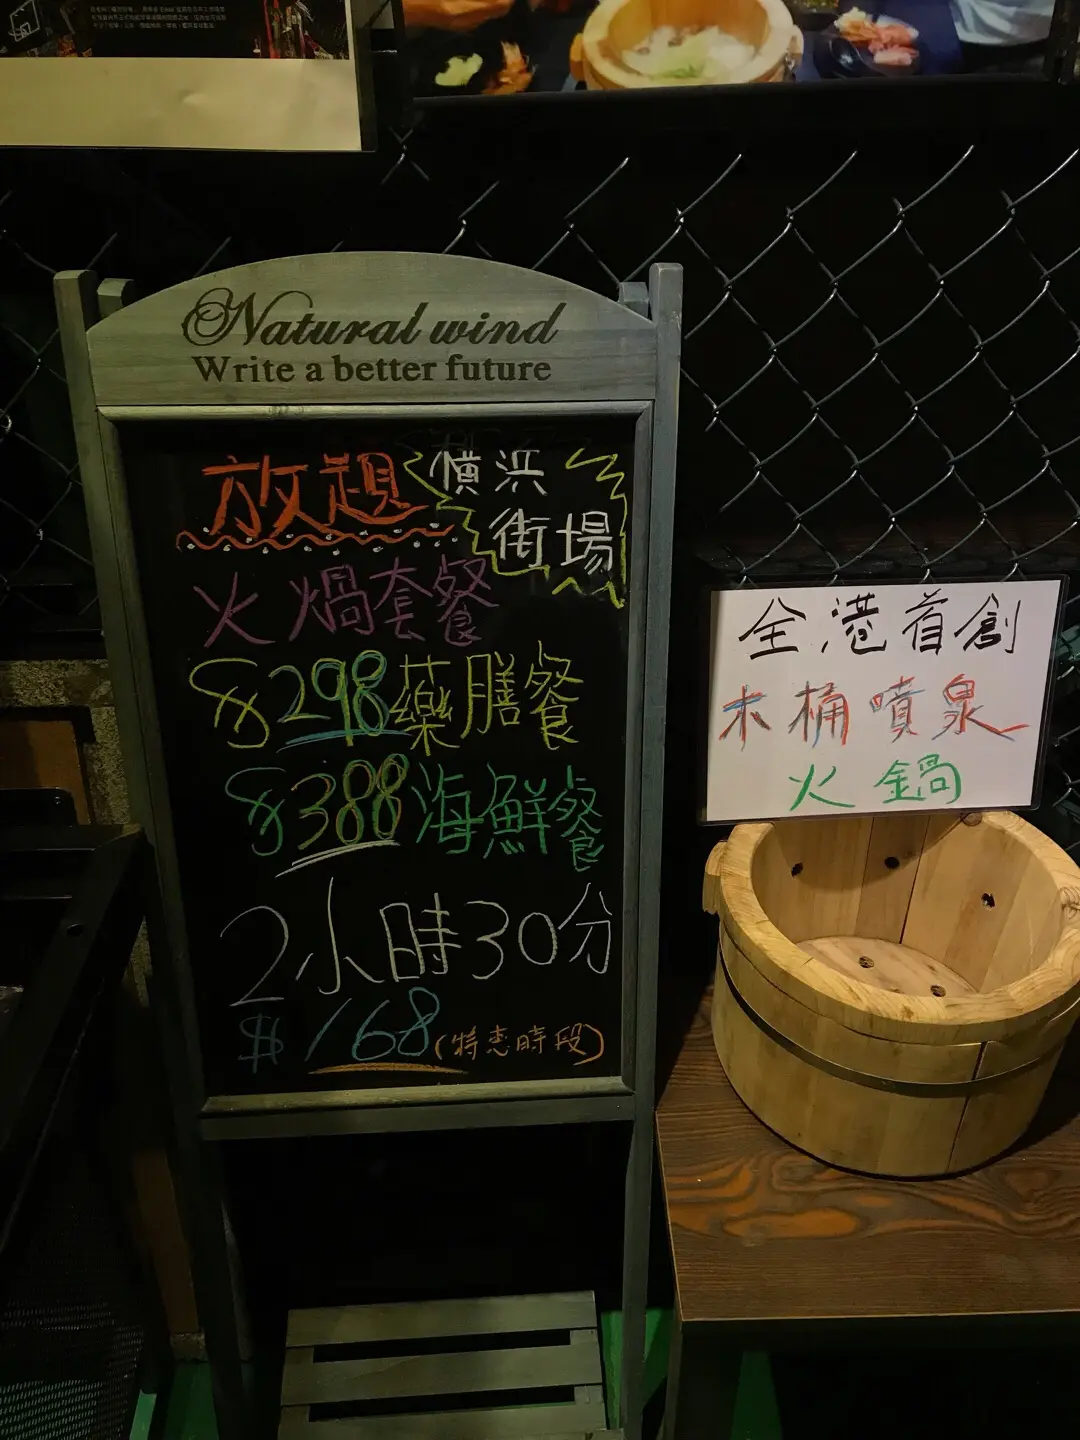 Natural wind
Write a better future
放題
橫浜
街場
火煱套餐
$298藥膳餐
$388海鮮餐
2小時30分
$168(特惠時段)
全港首創
木桶噴泉
火鍋